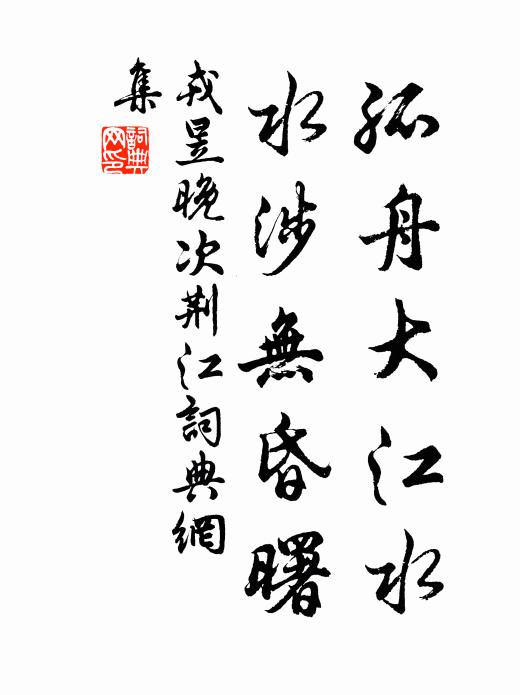 孤舟大江水
水涉無昏曙
戎昱晚次荆江詞典網
集
詞典
网印